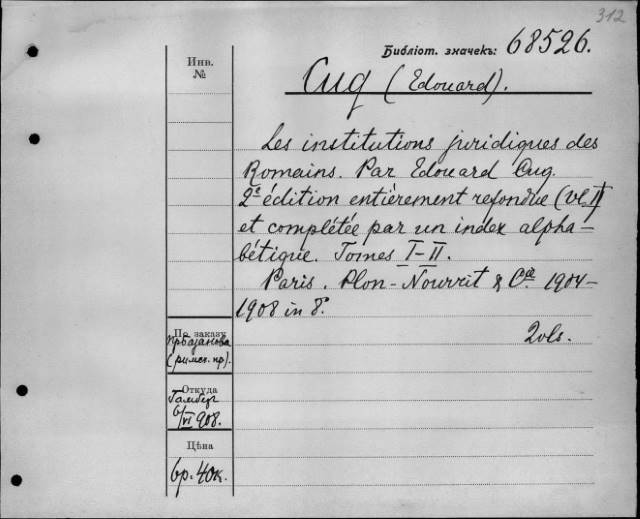 312
Библіот. значекъ: 68526.
Инв.
№
Cuq (Edouard).
Les institutions juridiques des
Romains. Par Edouard Cuq.
2e édition entièrement refondue (vol. I)
et complétée par un index alpha-
bétique. Tomes I-II.
Paris. Plon-Nourrit & Ce. 1904-
1908 in 8°.
2 vols.
По заказу
пр. Базанова
(римск. пр).
Откуда
6/VI 908.
Цѣна
6 р. 40 к.